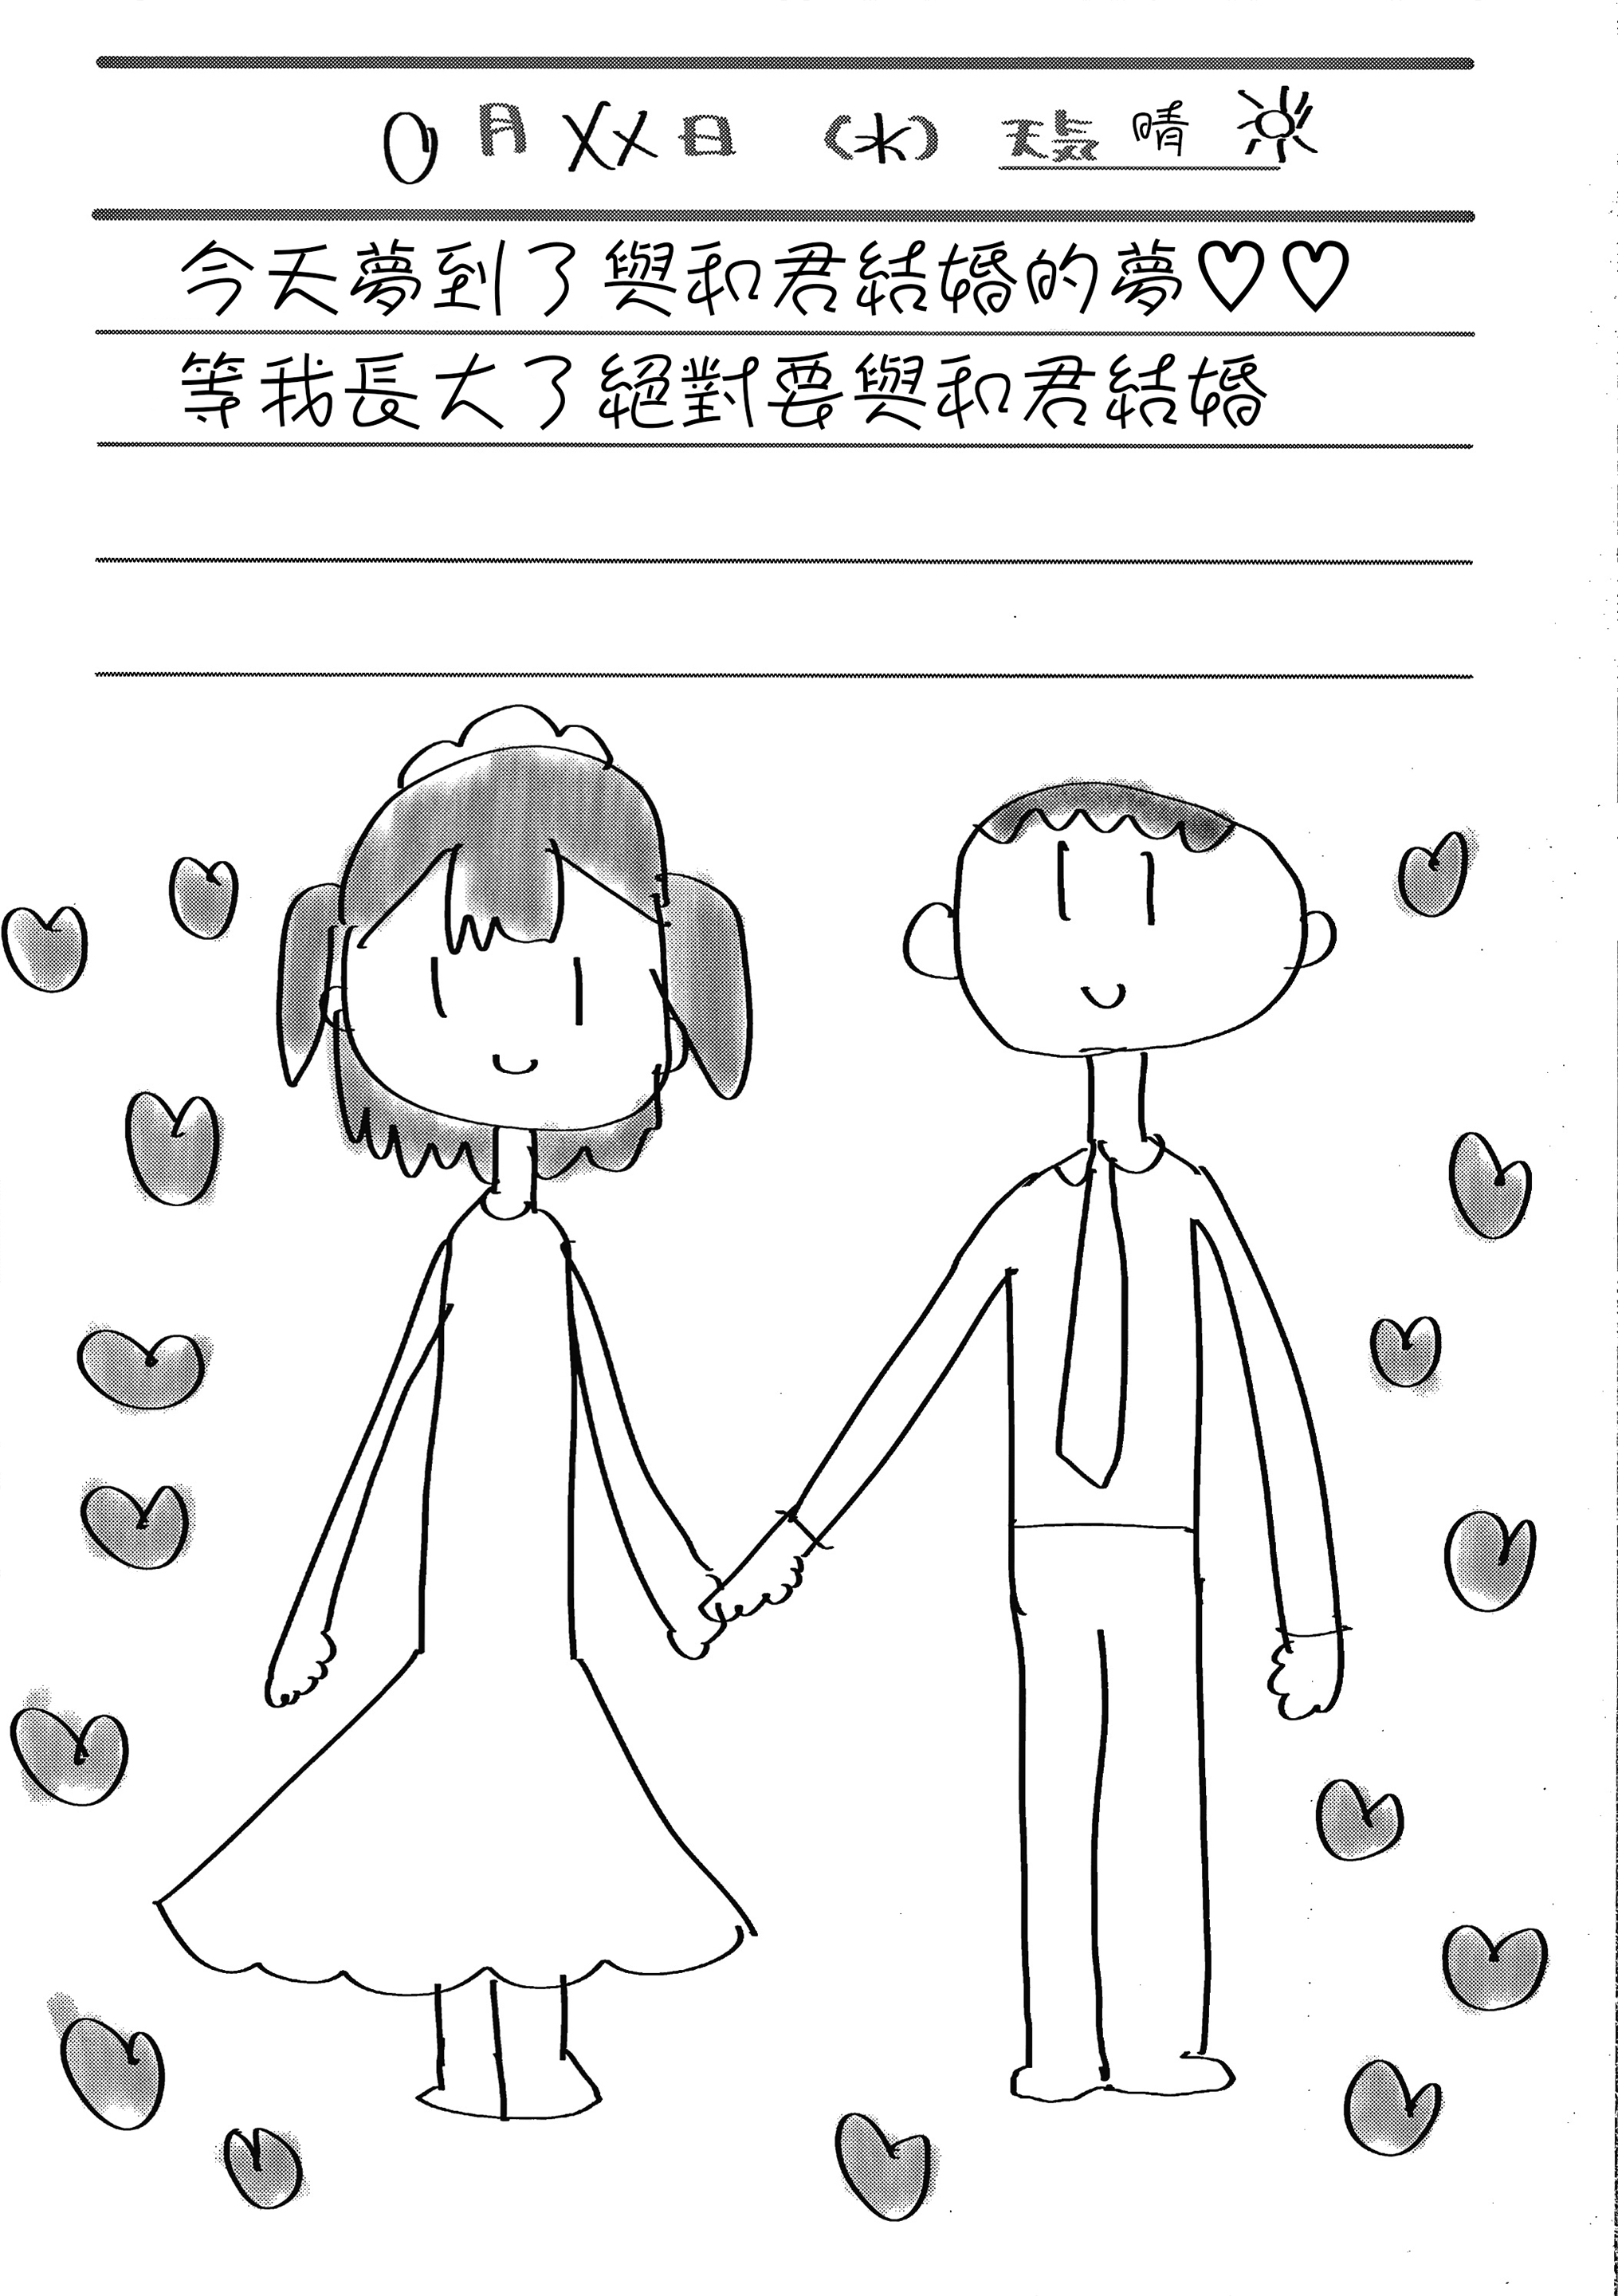 0月XX日 (水) 天気 晴
今天夢到了與和君結婚的夢♡♡
等我長大了絕對要與和君結婚